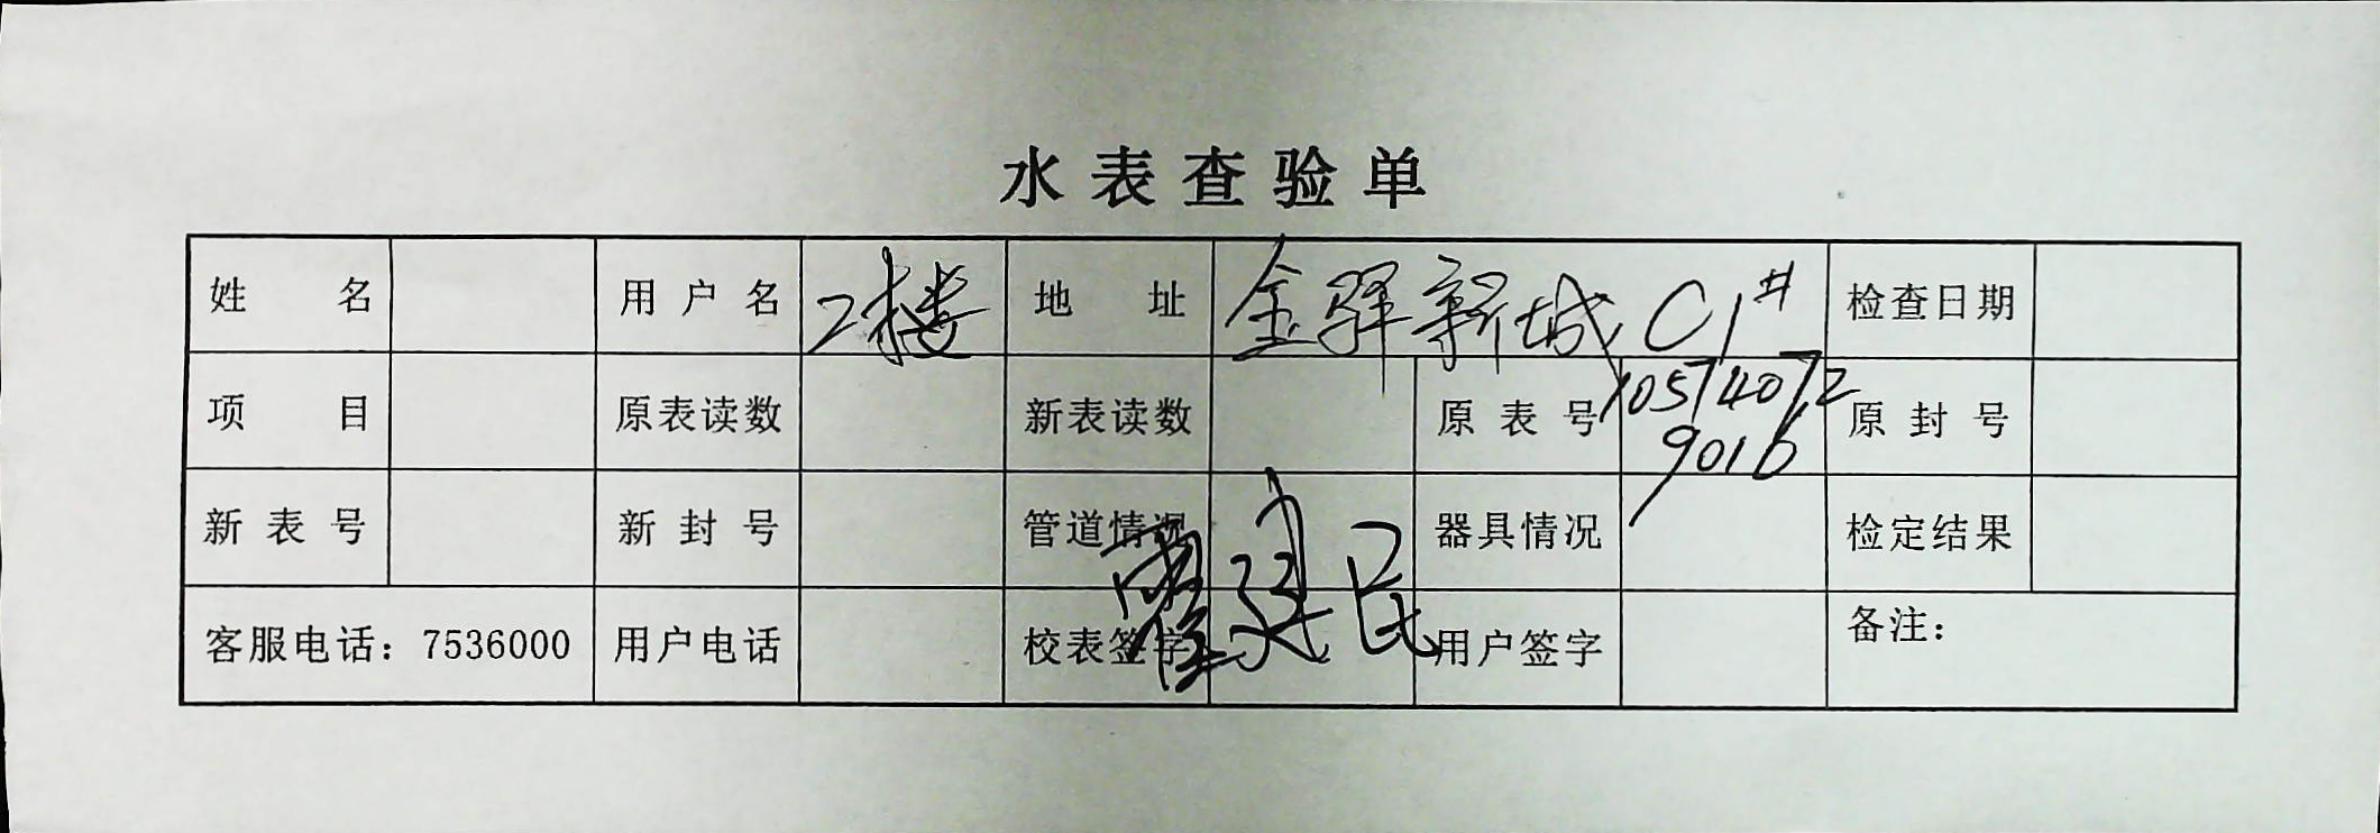 水表查验单
姓名 用户名 2楼 地址 金驿新城 C1# 检查日期
项目 原表读数 新表读数 原表号 10574072 原封号
9016
新表号 新封号 管道情况 器具情况 检定结果
客服电话：7536000 用户电话 校表签字 建民 用户签字 备注：